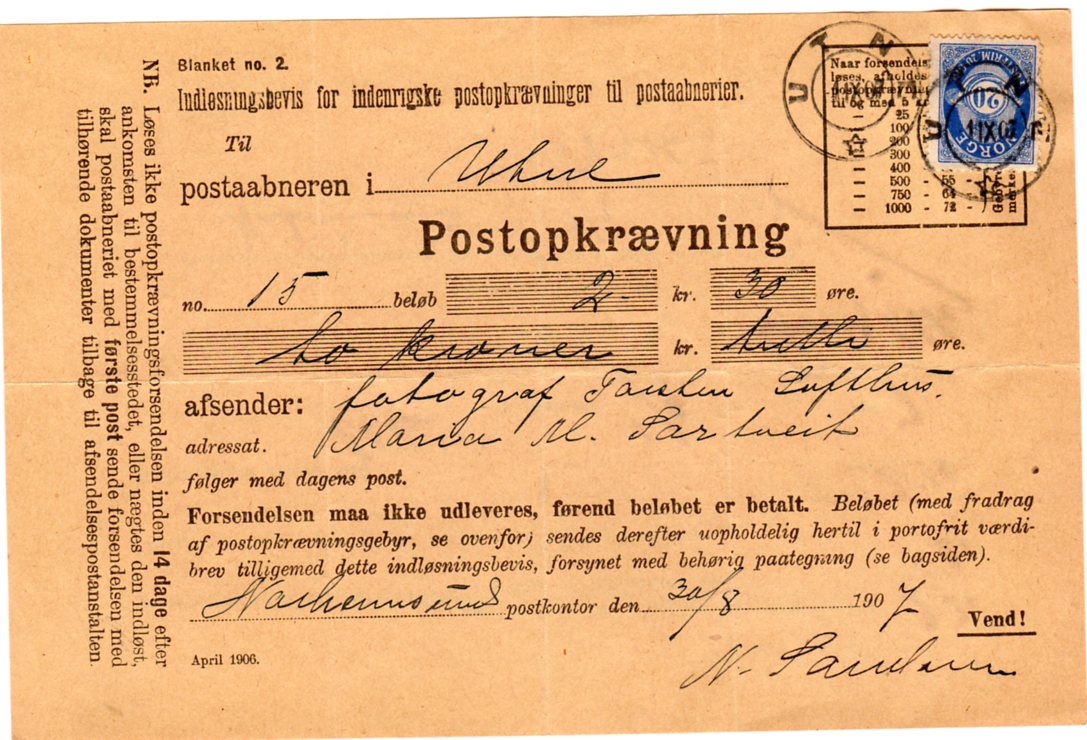 Blanket no. 2.
Indløsningsbevis for indenrigske postopkrævninger til postaabnerier.
Til
postaabneren i
Postopkrævning
no. 15 beløb 2- kr. 30 øre.
to kroner kr. øre.
afsender: fotograf Torsten Lofthus.
adressat. Maria M.
følger med dagens post.
Forsendelsen maa ikke udleveres, førend beløbet er betalt. Beløbet (med fradrag
af postopkrævningsgebyr, se ovenfor) sendes derefter uopholdelig hertil i portofrit værdi-
brev tilligemed dette indløsningsbevis, forsynet med behørig paategning (se bagsiden).
postkontor den 30/8 1907
Vend!
April 1906.
N.
NB. Løses ikke postopkrævningsforsendelsen inden 14 dage efter
ankomsten til bestemmelsesstedet, eller nægtes den indløst,
skal postaabneriet med første post sende forsendelsen med
tilhørende dokumenter tilbage til afsendelsespostanstalten.
Naar forsendels
løses, afholdes
postopkrævning
til og med 5 kr
25
100
200
300
400
500 - 55
750 - 64
1000 - 72
Gebyr
merke
UTNE
11 IX 07
NORGE
20